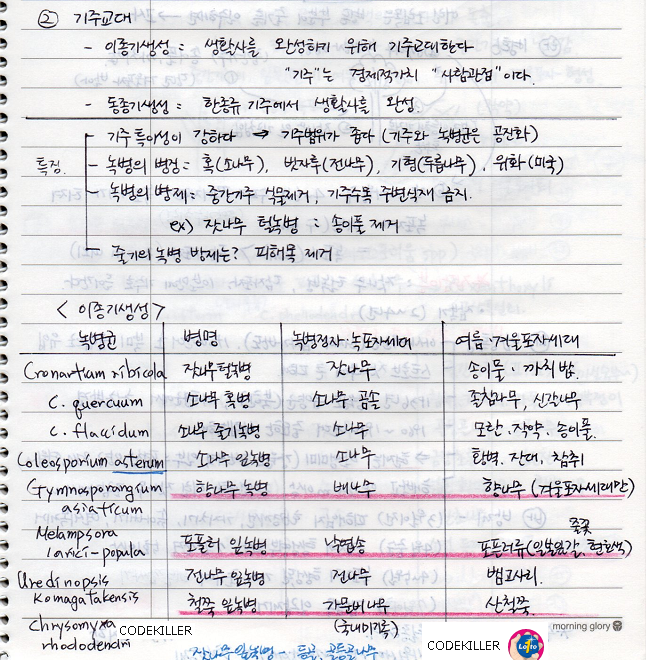 ② 기주교대
- 이종기생성 : 생활사를 완성하기 위해 기주교대한다
"기주"는 경제적가치 "사람관점"이다.
- 동종기생성 : 한종류 기주에서 생활사를 완성.
특징.
기주 특이성이 강하다 → 기주범위가 좁다 (기주와 녹병균은 공진화)
- 녹병의 병징 : 혹(소나무), 빗자루(전나무), 기형(두릅나무), 위화(미국)
- 녹병의 방제 : 중간기주 식물제거, 기주수목 주변식재 금지.
ex) 잣나무 털녹병 : 송이풀 제거
줄기의 녹병 방제는? 피해목 제거
< 이종기생성 >
녹병균 병명 녹병정자·녹포자세대 여름·겨울포자세대
Cronartium ribicola 잣나무털녹병 잣나무 송이풀·까치밥.
C. quercuum 소나무 혹병 소나무·곰솔 졸참나무, 신갈나무
C. flaccidum 소나무 줄기녹병 소나무 모란·작약·송이풀.
Coleosporium asterum 소나무 잎녹병 소나무 황벽, 잔대, 참취
Gymnosporangium 향나무 녹병 배나무 향나무 (겨울포자세대만)
asiaticum
Melampsora 중꽃
larici-popula 포플러 잎녹병 낙엽송 포플러류 (일본잎갈, 현호색)
Uredinopsis 전나무 잎녹병 전나무 뱀고사리.
Komagatakensis 철쭉 잎녹병 가문비나무 산철쭉.
Chrysomyxa (국내미기록)
rhododendri
잣나무 잎녹병 -
CODEKILLER
CODEKILLER
Lotto
morning glory